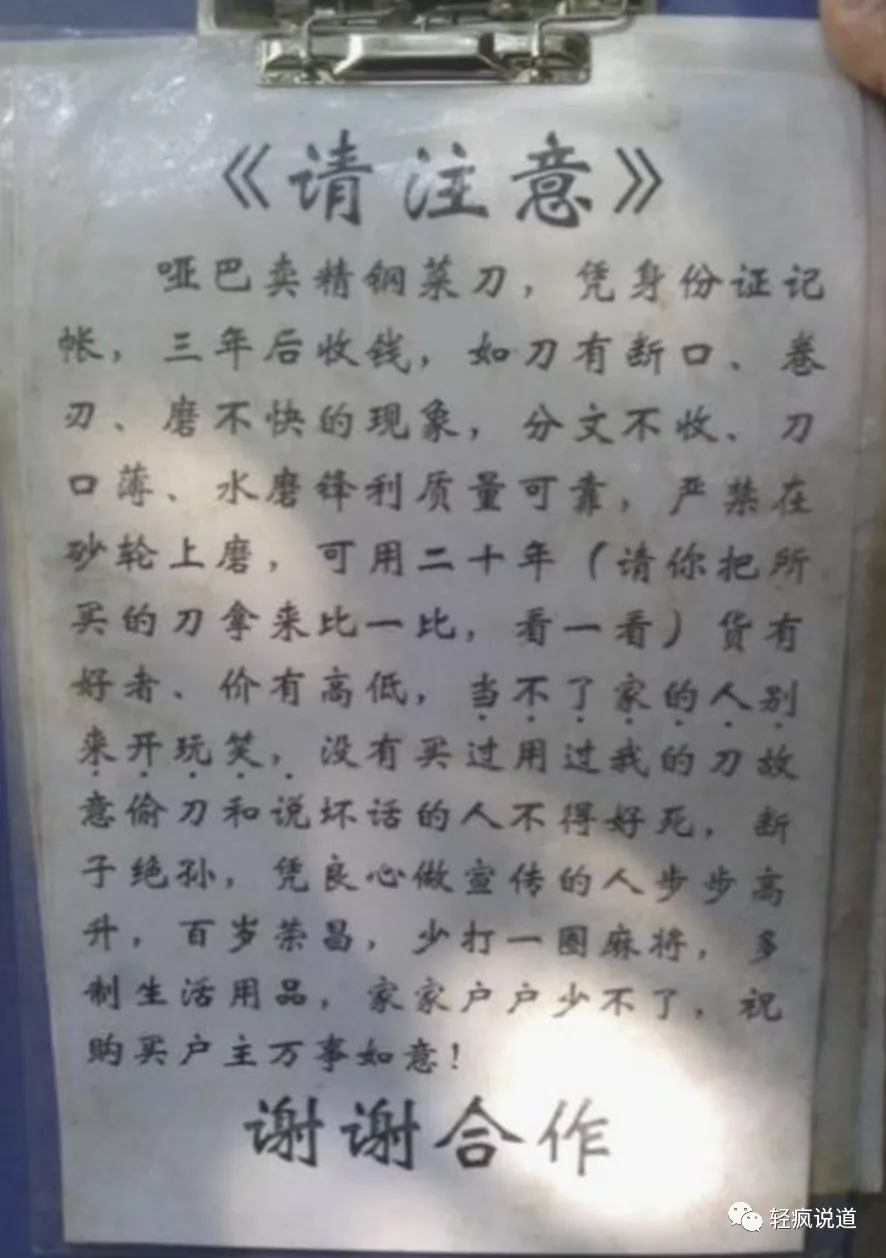 《请注意》
哑巴卖精钢菜刀，凭身份证记
帐，三年后收钱，如刀有断口、卷
刃、磨不快的现象，分文不收、刀
口薄、水磨锋利质量可靠，严禁在
砂轮上磨，可用二十年（请你把所
买的刀拿来比一比，看一看）货有
好者、价有高低，当不了家的人别
来开玩笑，没有买过用过我的刀故
意偷刀和说坏话的人不得好死，断
子绝孙，凭良心做宣传的人步步高
升，百岁荣昌，少打一圈麻将，多
制生活用品，家家户户少不了，祝
购买户主万事如意！
谢谢合作
轻疯说道